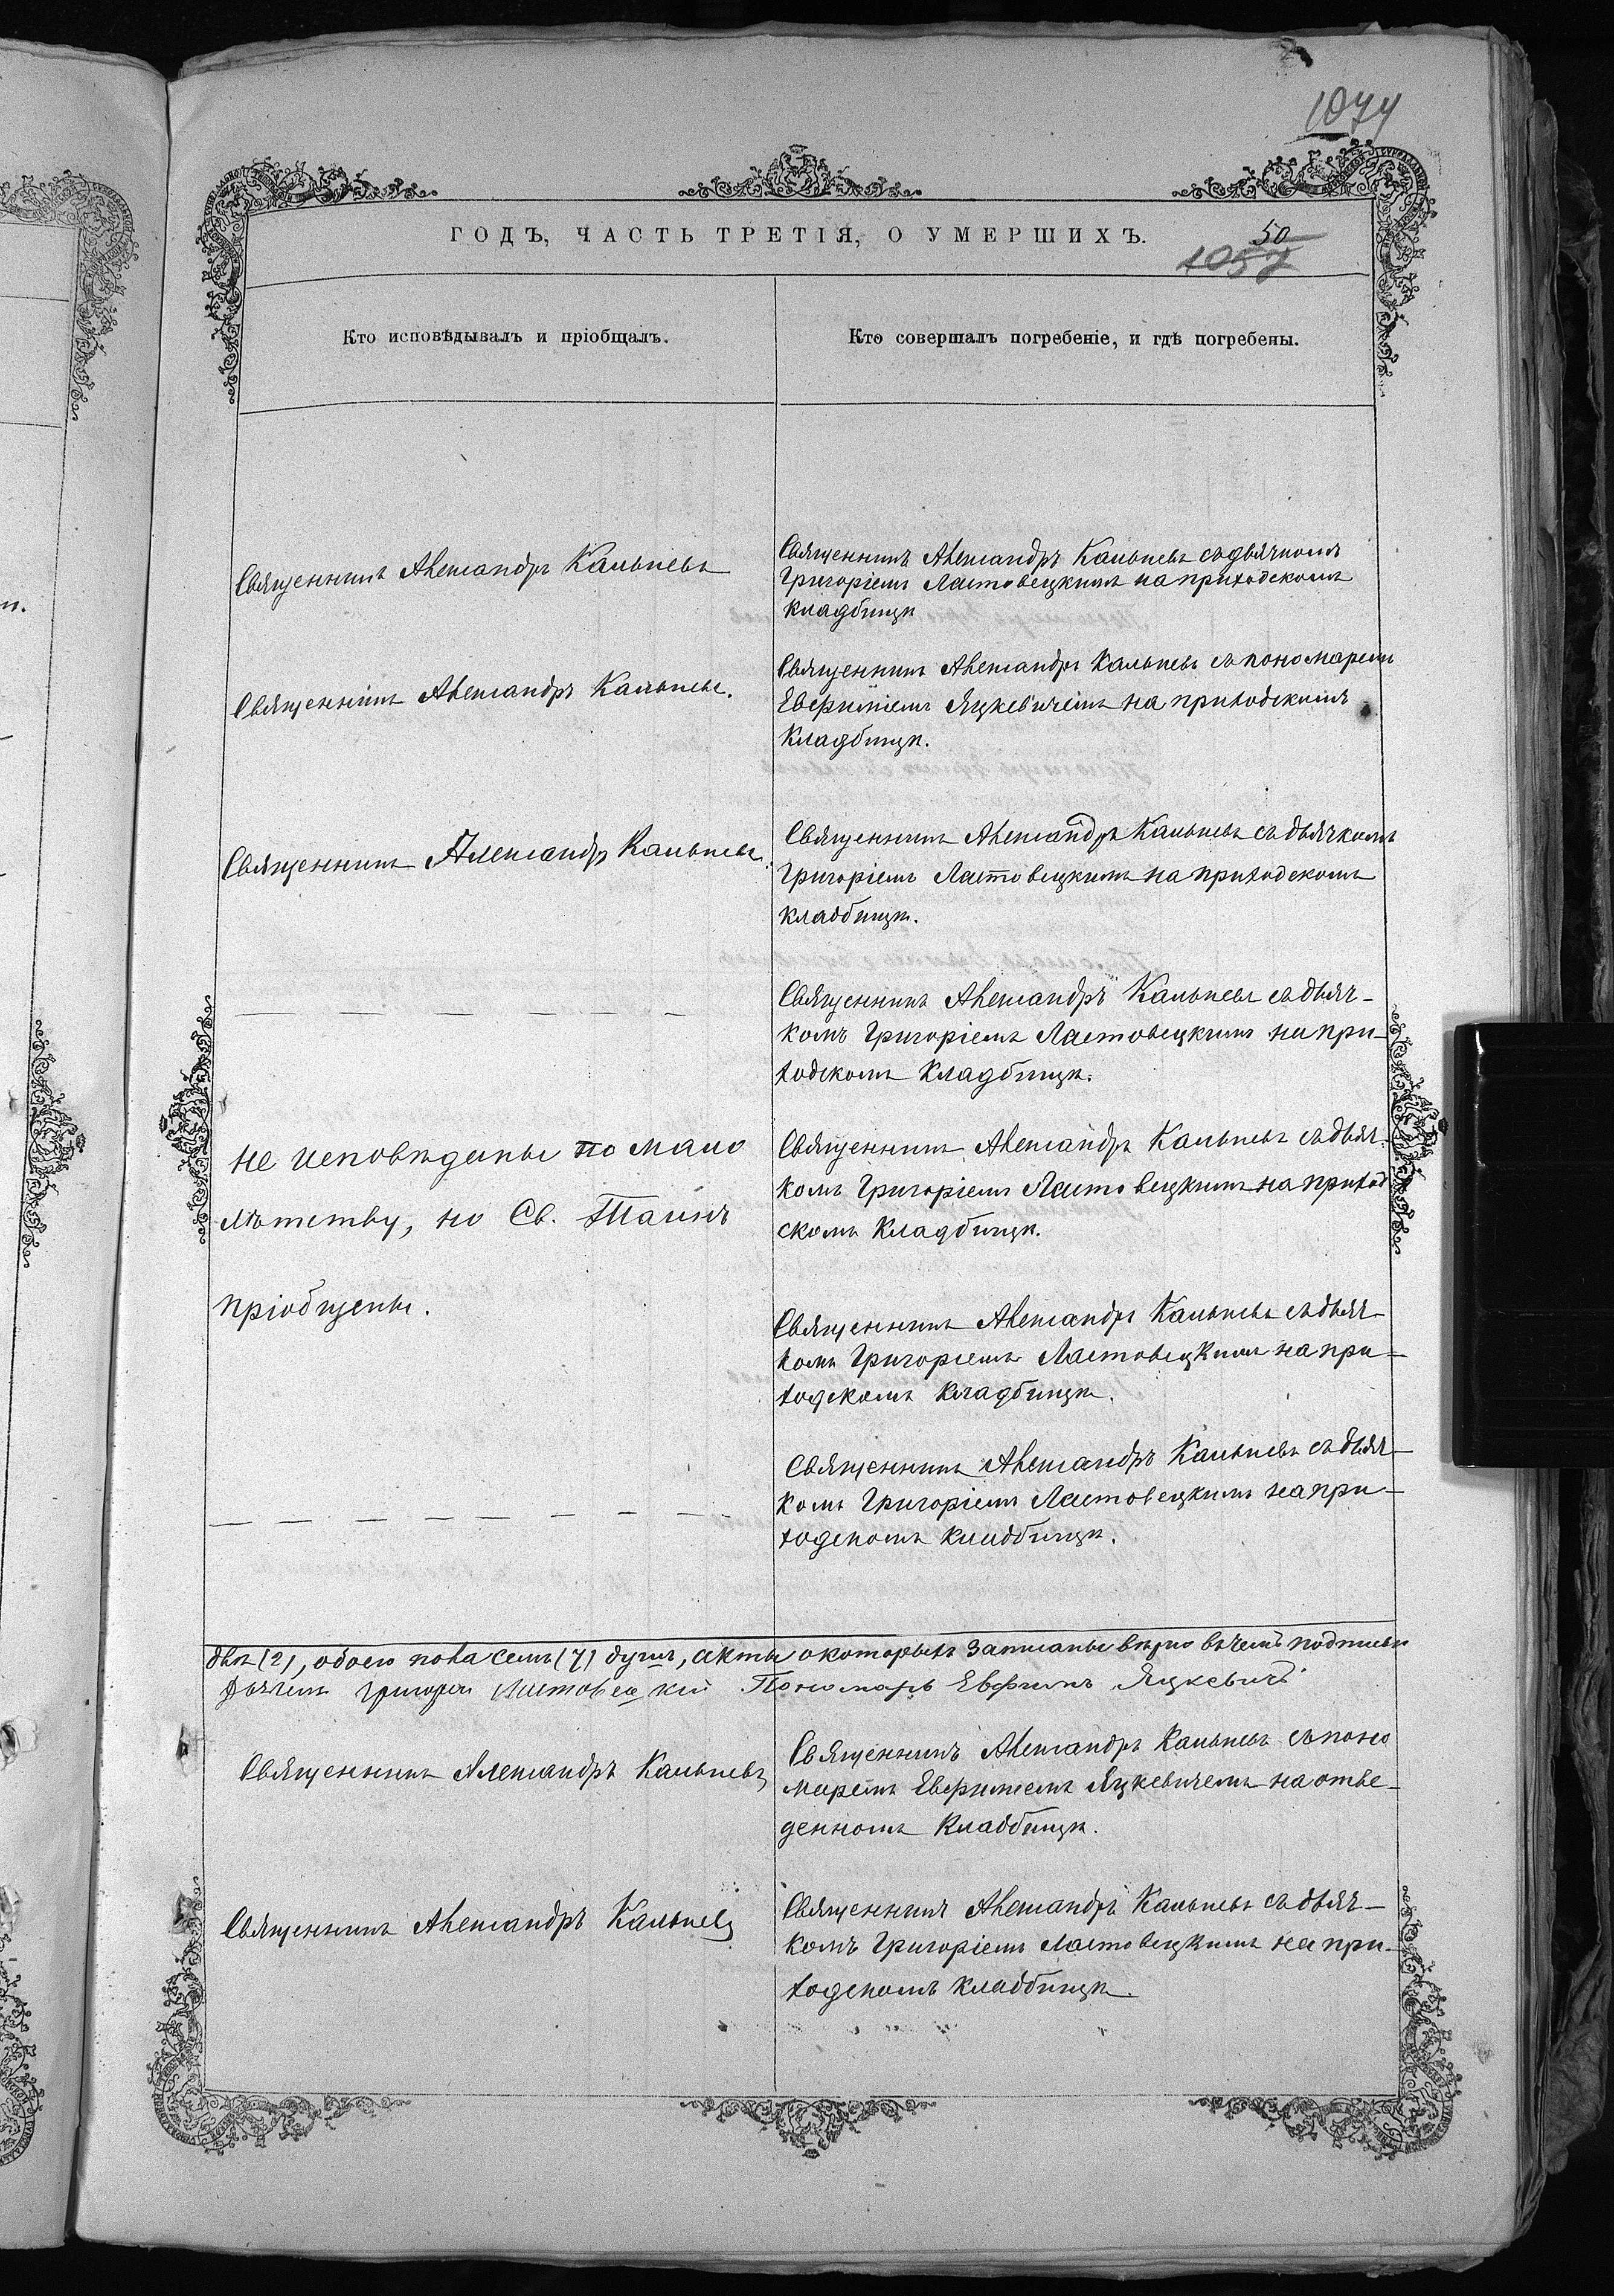 1074
ГОДЪ, ЧАСТЬ ТРЕТІЯ, О УМЕРШИХЪ.
50
1057
Кто исповѣдывалъ и пріобщалъ.
Кто совершалъ погребеніе, и гдѣ погребены.
Священникъ Александръ Кальневъ
Священникъ Александръ Кальневъ съ дьячкомъ
Григоріемъ Ластовецкимъ на приходскомъ
кладбищѣ
Священникъ Александръ Кальневъ.
Священникъ Александръ Кальневъ съ пономаремъ
Евфиміемъ Яцкевичемъ на приходскомъ
кладбищѣ.
Священникъ Александръ Кальневъ.
Священникъ Александръ Кальневъ съ дьячкомъ
Григоріемъ Ластовецкимъ на приходскомъ
кладбищѣ.
— — — — — — —
Священникъ Александръ Кальневъ съ дьяч-
комъ Григоріемъ Ластовецкимъ на при-
ходскомъ кладбищѣ.
не исповѣданы по мало
лѣтству, но Св. Таинъ
пріобщены.
Священникъ Александръ Кальневъ съ дьяч-
комъ Григоріемъ Ластовецкимъ на приход
скомъ кладбищѣ.
Священникъ Александръ Кальневъ съ дьяч-
комъ Григоріемъ Ластовецкимъ на при-
ходскомъ кладбищѣ.
— — — — — — —
Священникъ Александръ Кальневъ съ дьяч-
комъ Григоріемъ Ластовецкимъ на при-
ходскомъ кладбищѣ.
двѣ (2), обоего пола семь (7) душъ, акты о которыхъ записаны вѣрно въ чемъ подписы
Дьячекъ Григорій Ластовецкій Пономарь Евфимъ Яцкевичъ
Священникъ Александръ Кальневъ
Священникъ Александръ Кальневъ съ поно
маремъ Евфиміемъ Яцкевичемъ на отве-
денномъ кладбищѣ.
Священникъ Александръ Кальневъ
Священникъ Александръ Кальневъ съ дьяч-
комъ Григоріемъ Ластовецкимъ на при-
ходскомъ кладбищѣ.